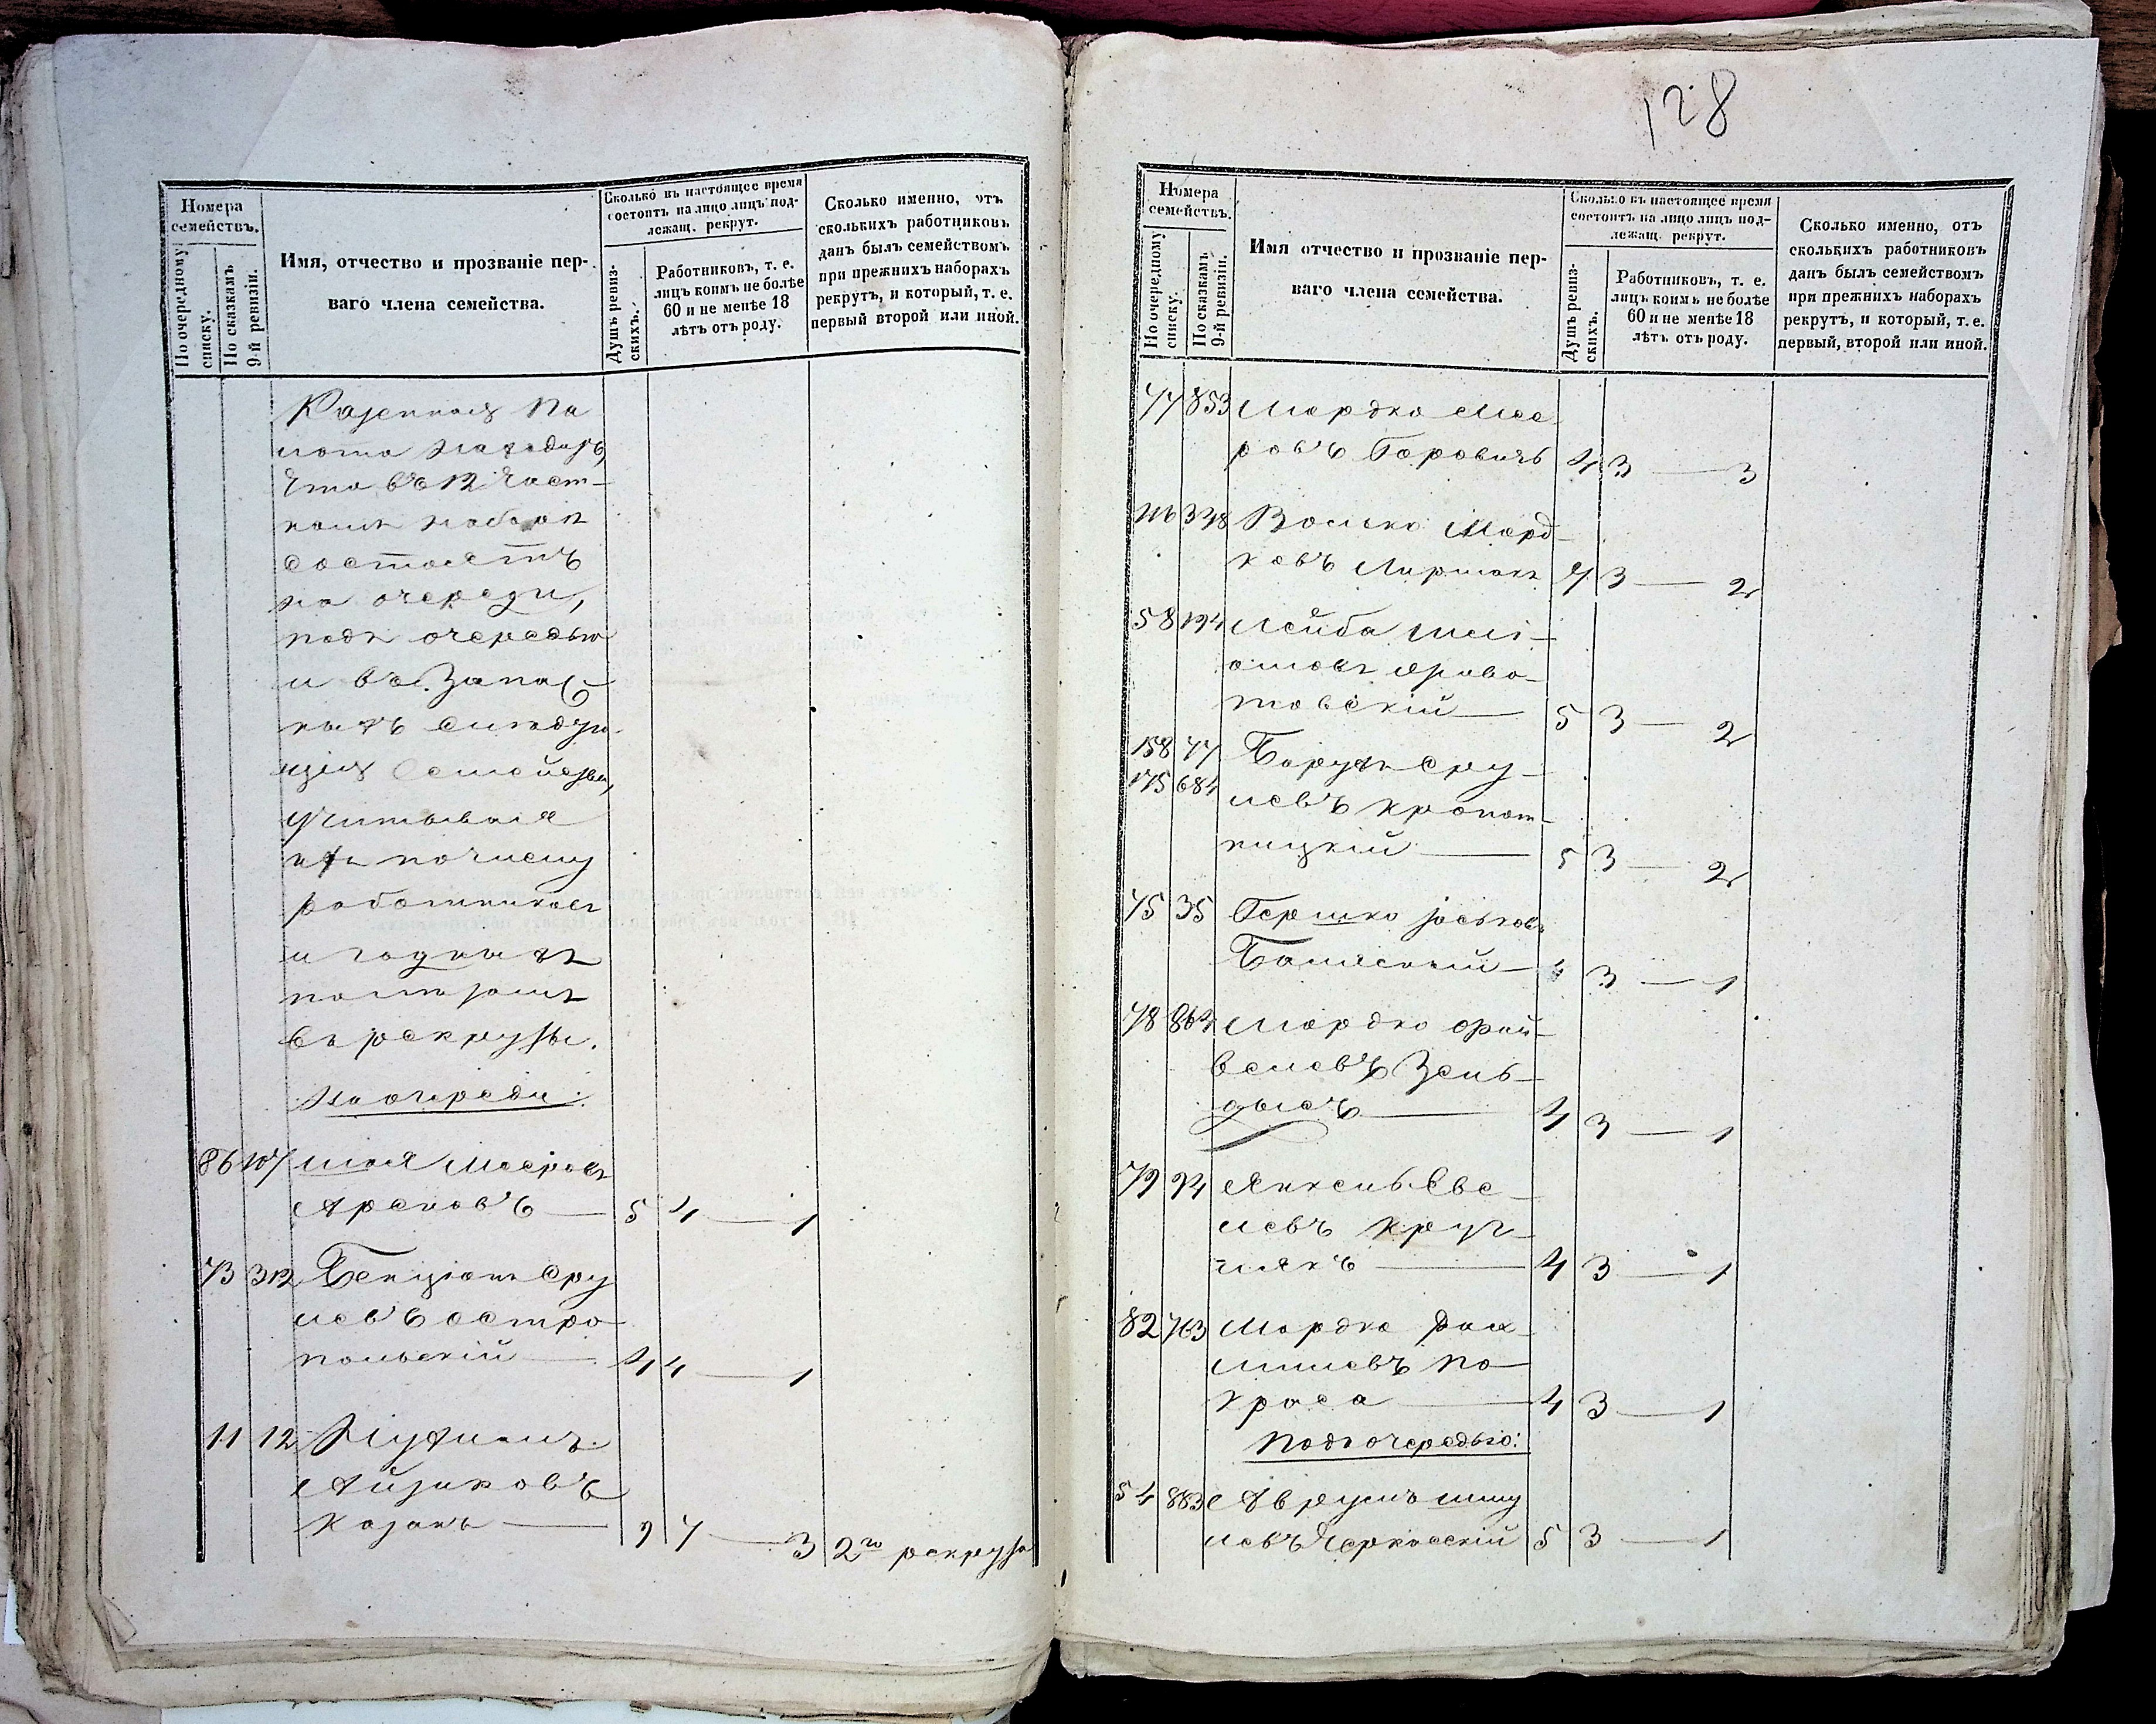 Номера семействъ.
По очередному списку.
По сказкамъ 9-й ревизіи.
Имя, отчество и прозваніе пер-
ваго члена семейства.
Сколько въ настоящее время
состоитъ на лицо лицъ под-
лежащ. рекрут.
Душъ ревиз-
скихъ.
Работниковъ, т. е.
лицъ коимъ не болѣе
60 и не менѣе 18
лѣтъ отъ роду.
Сколько именно, отъ
сколькихъ работниковъ
данъ былъ семействомъ
при прежнихъ наборахъ
рекрутъ, и который, т. е.
первый второй или иной.
Казенная Па
лата находитъ,
что въ 12 част-
номъ наборѣ
состоятъ
на очереди,
подъ очередью
и въ запас-
ныхъ слѣдую-
щія семейства,
учитывая
ихъ по числу
работниковъ
и годныхъ
въ рекруты.
На очереди:
86 107 Шая Мееровъ
5 4 — 1
73 312 Бенціонъ Сру
левъ Остро
польскій — 4 4 — 1
11 12 Нухимъ
Айзиковъ
Казакъ — 9 7 — 3 2го рекрута
128
Номера
семействъ.
По очередному
списку.
По сказкамъ
9-й ревизіи.
Имя отчество и прозваніе пер-
ваго члена семейства.
Сколько въ настоящее время
состоитъ на лицо лицъ под-
лежащ. рекрут.
Душъ ревиз-
скихъ.
Работниковъ, т. е.
лицъ коимъ не болѣе
60 и не менѣе 18
лѣтъ отъ роду.
Сколько именно, отъ
сколькихъ работниковъ
данъ былъ семействомъ
при прежнихъ наборахъ
рекрутъ, и который, т. е.
первый, второй или иной.
77 853 Мордко Мее-
ровъ Горовичъ 4 3 — 3
338 Волько Морд-
ковъ 7 3 — 2
58 194 Лейба Шлі-
омовъ
5 3 — 2
158 77 Борухъ Сру-
175 684 левъ Кропот-
ницкій — 5 3 — 2
75 35 Гершко Іоськовъ
4 3 — 1
78 864 Мордко Фай-
велевъ Зель-
4 3 — 1
79 94 Янкель Еве-
левъ Круг-
лякъ — 4 3 — 1
82 763 Мордко Рах-
милевъ По-
краса — 4 3 — 1
Подъ очередью:
54 883 Аврумъ Шму
левъ Черкасскій 5 3 — 1